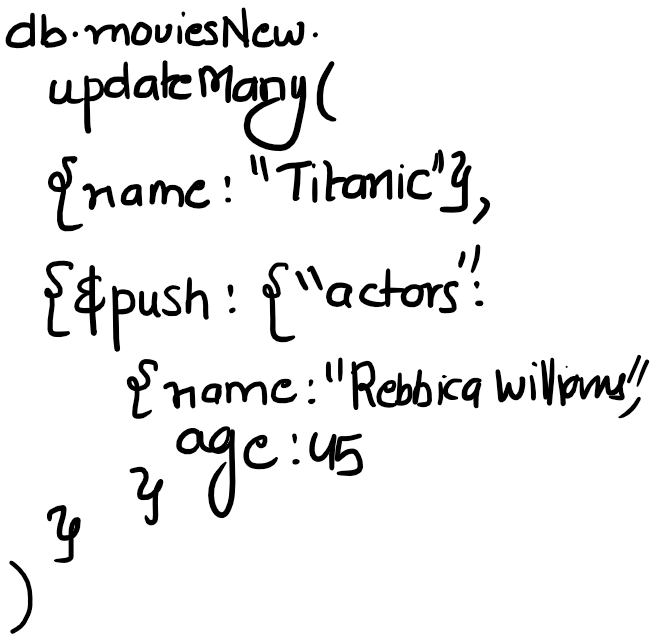 db.moviesNew.
updateMany(
{name: "Titanic"},
{$push: {"actors":
{name: "Rebbica Williams",
age: 45
}
}
)